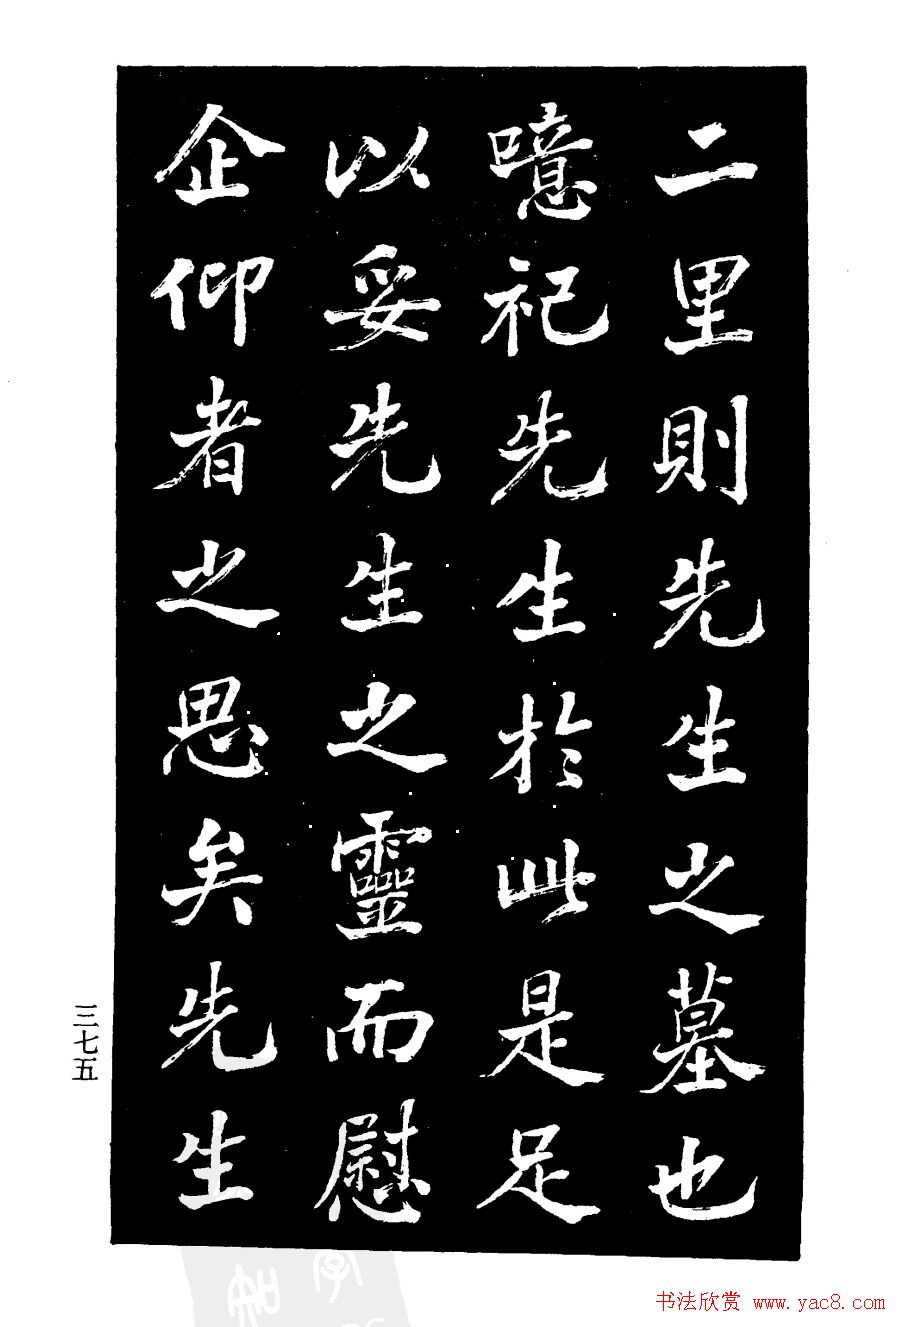 二里則先生之墓也
噫祀先生於此是足
以妥先生之靈而慰
企仰者之思矣先生
三七五
书法欣赏 www.yac8.com